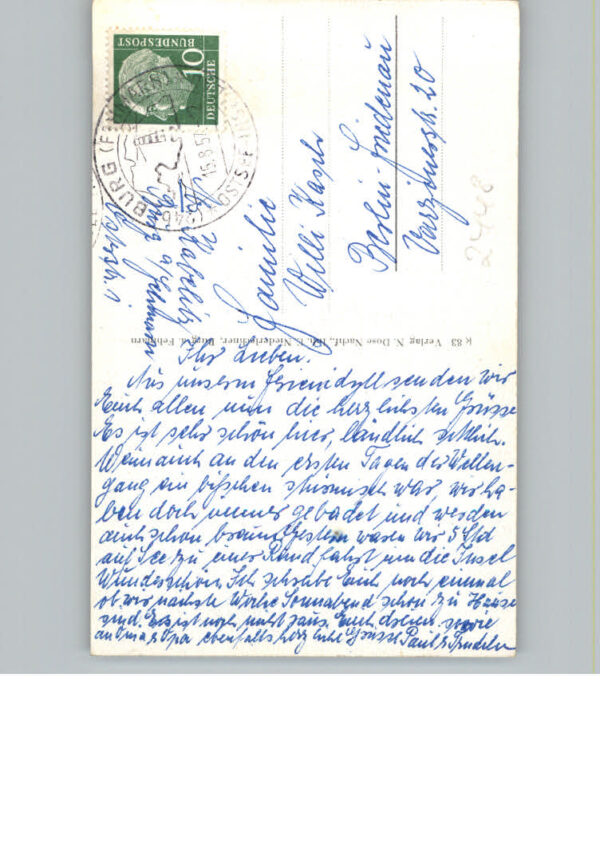 10
DEUTSCHE
BUNDESPOST
BURG (FEHMARN)
OSTSEE
Familie
Willi
Berlin-Friedenau
Varzinerstr. 20
2448
K 83 Verlag N. Dose Nachf., Inh. E. Niederlechner, Burg a. Fehmarn
Ihr Lieben.
Aus unserm Ferienidyll senden wir
Euch allen nun die herzlichsten Grüsse
Es ist sehr schön hier, ländlich sittlich.
Wenn auch an den ersten Tagen der Wellen-
gang ein bißchen stürmisch war, wir ha-
ben doch immer gebadet und werden
auch schon braun. Gestern waren wir 5 Std
auf See zu einer Rundfahrt um die Insel
Wunderschön. Ich schreibe Euch noch einmal
ob wir nächste Woche Sonnabend schon zu Hause
sind. Es ist noch nicht raus. Euch sowie
an Oma & Opa ebenfalls herzliche Grüsse Paul &